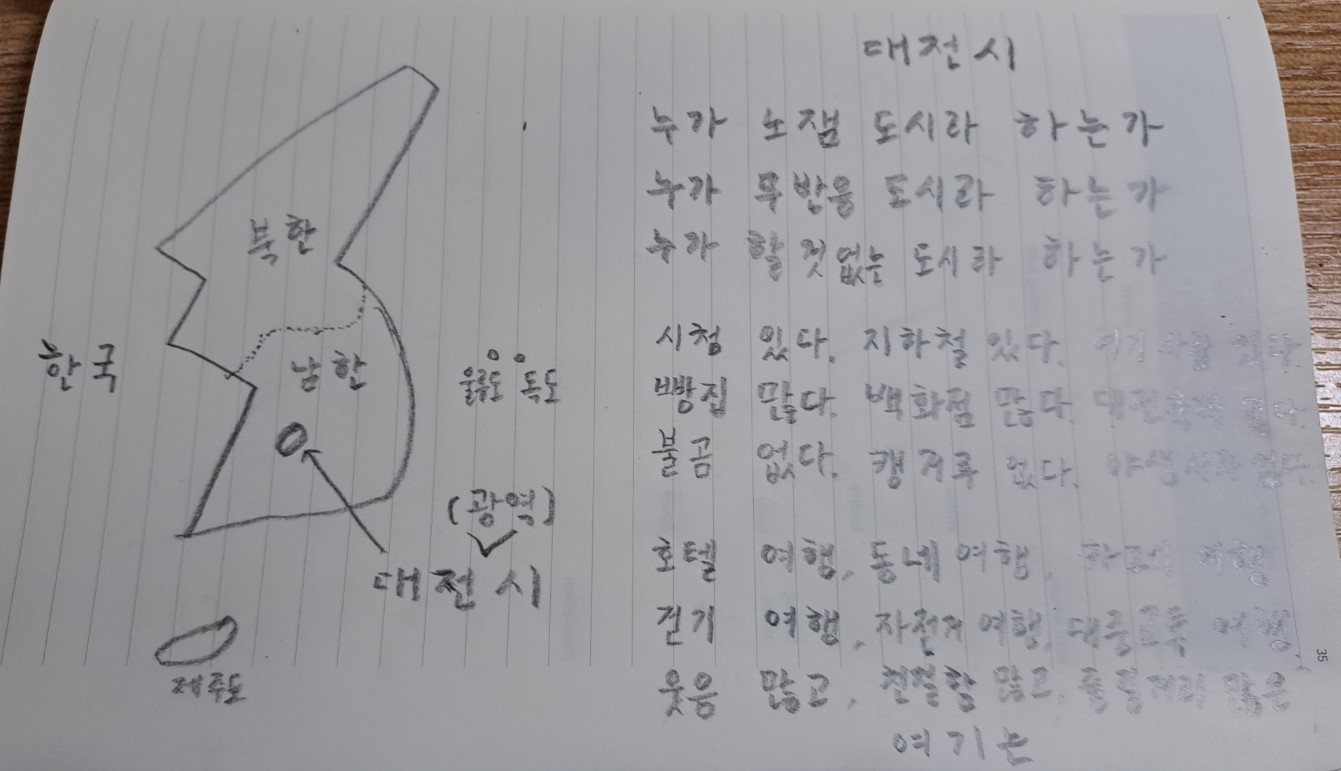 북한
한국
남한
울릉도 독도
(광역)
대전시
제주도
대전시
누가 노잼 도시라 하는가
누가 무반응 도시라 하는가
누가 할 것 없는 도시라 하는가
시청 있다. 지하철 있다. 여기 사람 있다.
빵집 많다. 백화점 많다. 대전
불곰 없다. 캥거루 없다. 야생사자 없다.
호텔 여행, 동네 여행, 여행
걷기 여행, 자전거 여행, 대중교통 여행,
웃음 많고, 친절함 많고, 많은
여기는
35